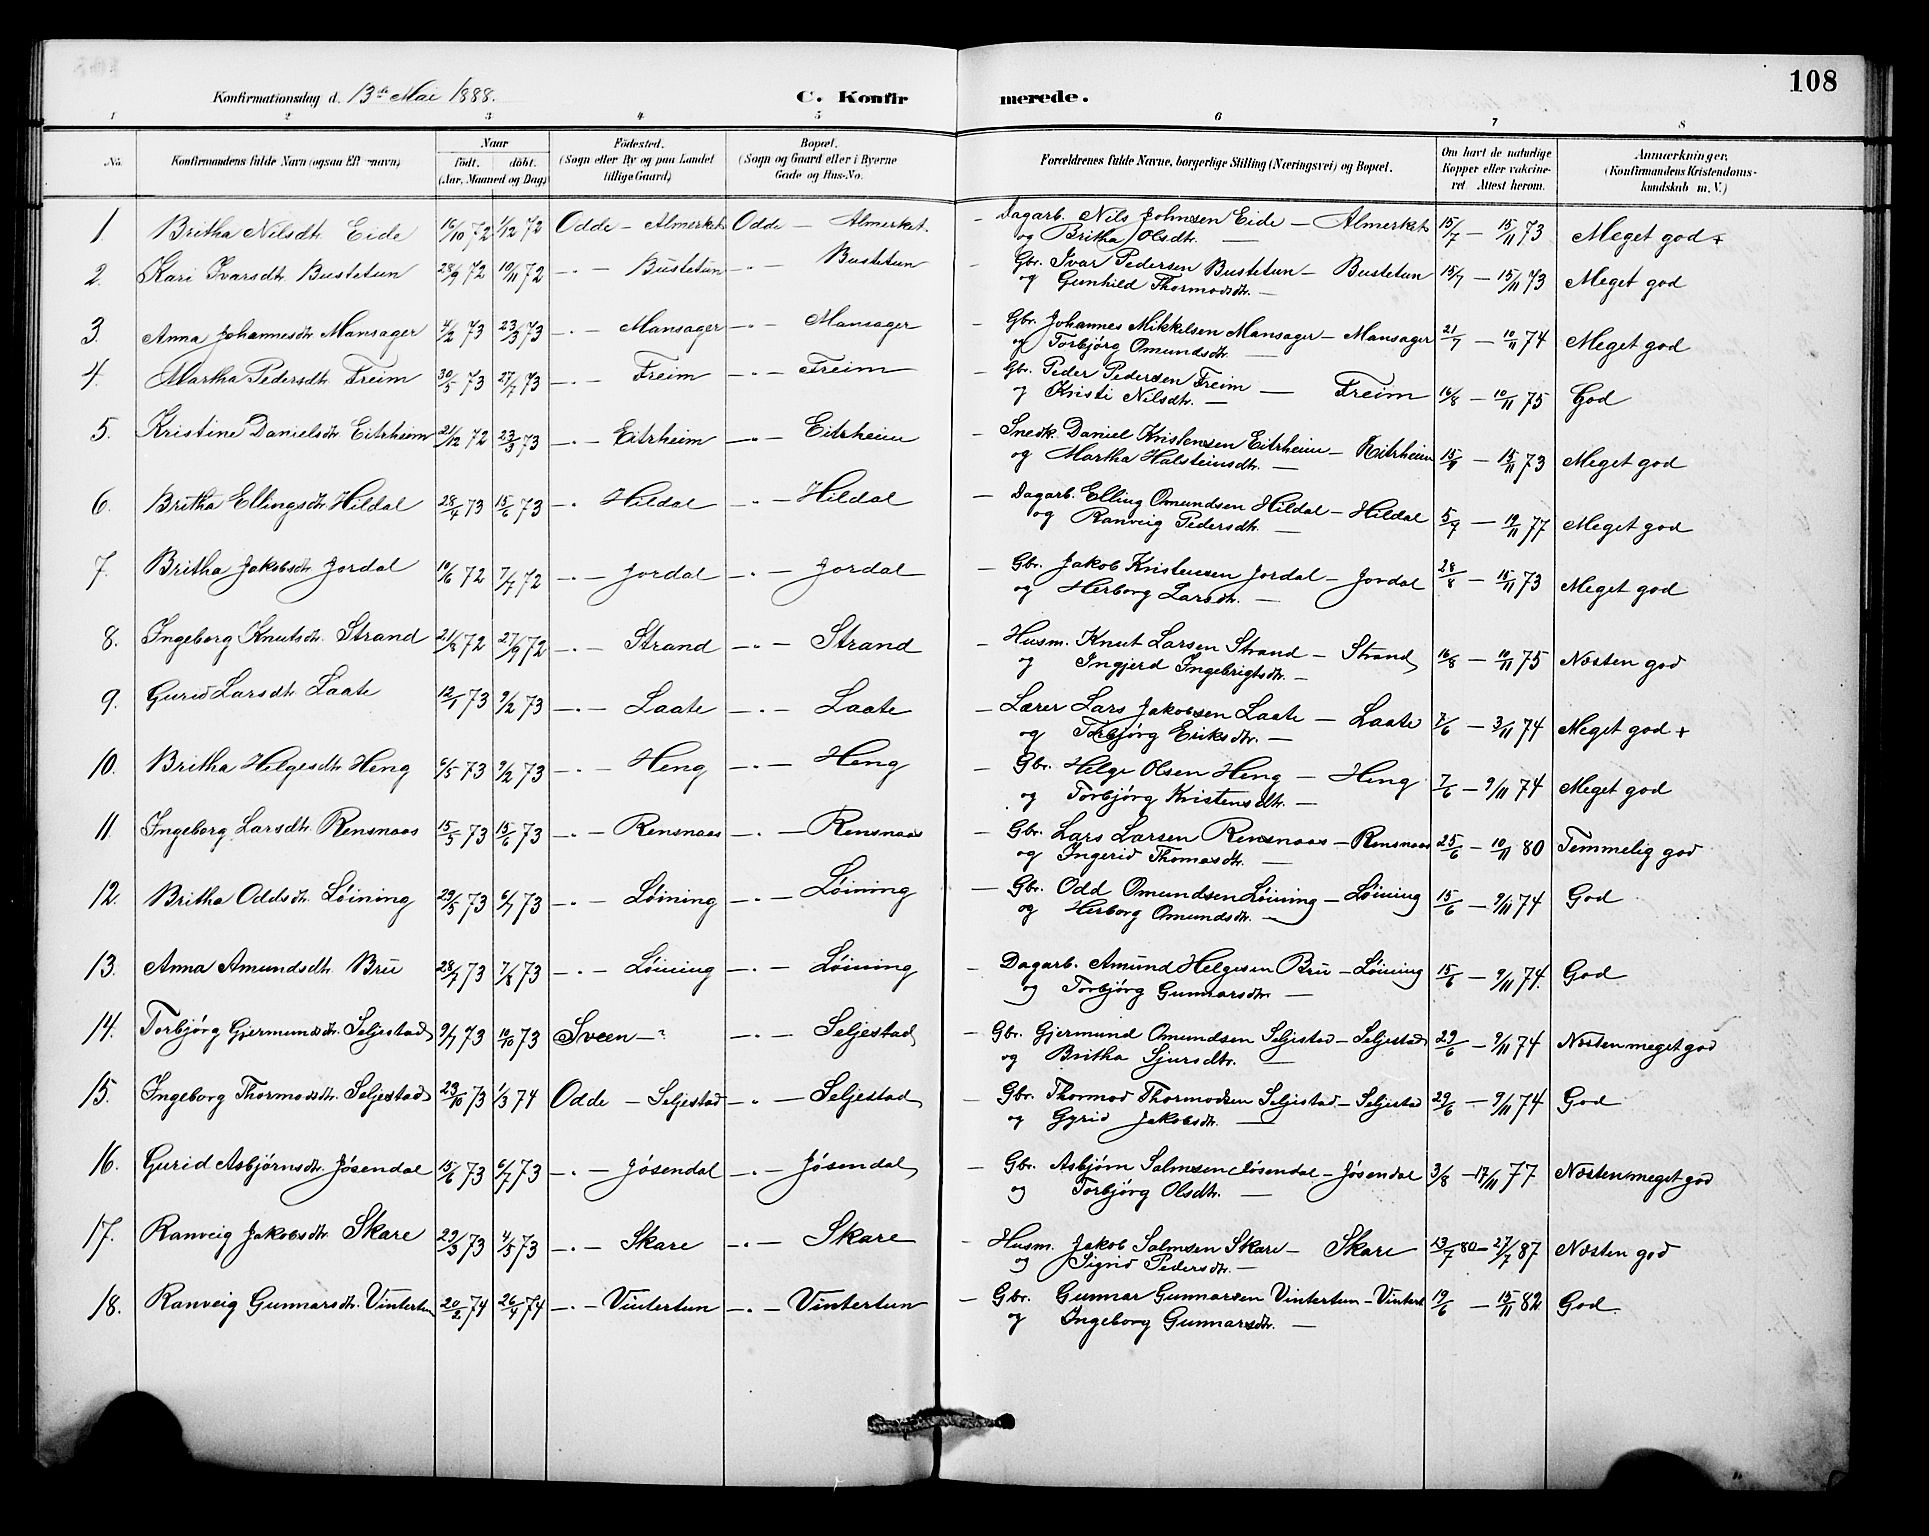 108
Konfirmationsdag d. 13de Mai 1888. C. Konfirmerede.
1 2 3 4 5 6 7 8
No. Konfirmandens fulde Navn (ogsaa Efternavn) Naar födt. döbt. (Aar, Maaned og Dag) Födested. (Sogn eller By og paa Landet tillige Gaard) Bopæl. (Sogn og Gaard eller i Byerne Gade og Hus-No. Forældrenes fulde Navne, borgerlige Stilling (Næringsvei) og Bopæl. Om havt de naturlige Kopper eller vakcineret. Attest herom. Anmærkninger. (Konfirmandens Kristendomskundskab m. V.)
1. Britha Nilsdtr. Eide 16/10 72 1/12 72 Odde - Almerket Odde - Almerket. - Dagarb. Nils Johnsen Eide - Almerket 15/7 - 15/11 73 Meget god +
og Britha Olsdtr. -
2. Kari Ivarsdtr. Bustetun 28/9 72 10/11 72 -"- Bustetun -"- Bustetun - Gbr. Ivar Pedersen Bustetun - Bustetun 15/7 - 15/11 73 Meget god
og Gunhild Thormodsdtr. -
3. Anna Johannesdtr. Mansager 4/2 73 23/3 73 -"- Mansager -"- Mansager - Gbr. Johannes Mikkelsen Mansager - Mansager 21/7 - 10/11 74 Meget god
og Torbjörg Omundsdtr. -
4. Martha Pedersdtr. Freim 30/5 73 27/7 73 -"- Freim -"- Freim - Gbr. Peder Pedersen Freim - Freim 16/8 - 10/11 75 God
og Kristi Nilsdtr. -
5. Kristine Danielsdtr. Eitrheim 21/12 72 23/3 73 -"- Eitrheim -"- Eitrheim - Snedk. Daniel Kristensen Eitrheim - Eitrheim 15/9 - 15/11 73 Meget god
og Martha Halsteinsdtr. -
6. Britha Ellingsdtr. Hildal 28/4 73 15/6 73 -"- Hildal -"- Hildal - Dagarb. Elling Omundsen Hildal - Hildal 5/9 - 19/11 77 Meget god
og Ranveig Pedersdtr. -
7. Britha Jakobsdtr. Jordal 10/6 72 7/7 72 -"- Jordal -"- Jordal - Gbr. Jakob Kristensen Jordal - Jordal 28/8 - 15/11 73 Meget god
og Herborg Larsdtr. -
8. Ingeborg Knutsdtr. Strand 21/8 72 27/9 72 -"- Strand -"- Strand - Husm. Knut Larsen Strand - Strand 16/8 - 10/11 75 Næsten god
og Ingjerd Ingebrigtsdtr. -
9. Gurid Larsdtr. Laate 12/1 73 9/2 73 -"- Laate -"- Laate - Lærer Lars Jakobsen Laate - Laate 7/6 - 3/11 74 Meget god +
og Torbjörg Eriksdtr. -
10. Britha Helgesdtr. Heng 6/5 73 9/2 73 -"- Heng -"- Heng - Gbr. Helge Olsen Heng - Heng 7/6 - 9/11 74 Meget god
og Torbjörg Kristensdtr. -
11 Ingeborg Larsdtr. Rensnaas 15/5 73 15/6 73 -"- Rensnaas -"- Rensnaas - Gbr. Lars Larsen Rensnaas - Rensnaas 25/6 - 10/11 80 Temmelig god
og Ingerid Thomasdtr. -
12. Britha Oddsdtr. Löining 29/5 73 6/7 73 -"- Löining -"- Löining - Gbr. Odd Omundsen Löining - Löining 15/6 - 9/11 74 God
og Herborg Omundsdtr. -
13. Anna Amundsdtr. Bru 28/7 73 7/8 73 -"- Löining -"- Löining - Dagarb. Amund Helgesen Bru - Löining 15/6 - 9/11 74. God
og Torbjörg Gunnarsdtr. -
14. Torbjörg Gjermundsdtr. Seljestad 9/7 73 19/10 73 Sveen - ? -"- Seljestad - Gbr. Gjermund Omundsen Seljestad - Seljestad 29/6 - 9/11 74 Næsten meget god
og Britha Sjursdtr. -
15. Ingeborg Thormodsdtr. Seljestad 29/10 73 1/3 74 Odde - Seljestad -"- Seljestad - Gbr. Thormod Thormodsen Seljestad - Seljestad 29/6 - 9/11 74 God
og Gyrid Jakobsdtr. -
16. Gurid Asbjörnsdtr. Jösendal 15/6 73 6/7 73 -"- Jösendal -"- Jösendal - Gbr. Asbjörn Salmsen Jösendal - Jösendal 3/8 - 17/11 77 Næsten meget god
og Torbjörg Olsdtr. -
17. Ranveig Jakobsdtr. Skare 29/3 73 4/5 73 -"- Skare -"- Skare - Husm. Jakob Salmsen Skare - Skare 13/7 80 - 27/7 87 Næsten god
og Sigrid Pedersdtr. -
18. Ranveig Gunnarsdtr. Vintertun 20/2 74 26/4 74 -"- Vintertun -"- Vintertun - Gbr. Gunnar Gunnarsen Vintertun - Vintert 19/6 - 15/11 82 God
og Ingeborg Gunnarsdtr. -